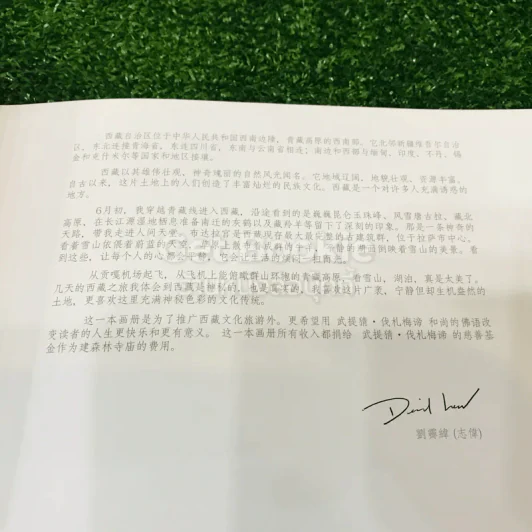 西藏自治区位于中华人民共和国西南边陲，青藏高原的西南部，它北邻新疆维吾尔自治
区，东北连接青海省，东连四川省，东南与云南省相连；南边和西部与缅甸，印度，不丹，锡
金和克什米尔等国家和地区接壤。
西藏以其雄伟壮观，神奇瑰丽的自然风光闻名。它地域辽阔，地貌壮观，资源丰富。
自古以来，这片土地上的人们创造了丰富灿烂的民族文化。西藏是一个对许多人充满诱惑的
地方。
6月初，我穿越青藏线进入西藏，沿途看到的是巍巍昆仑玉珠峰，风雪缭古拉，藏北
高原，在长江源滋地栖息准备南迁的灰鹤以及藏羚羊等留下了深刻的印象。那是一条神奇的
天路，带我走进人间天堂。布达拉宫是西藏现存最大最完整的古建筑群，位于拉萨市中心。
看着雪山依偎着蔚蓝的天空，
到这些，让每个人的心
从贡嘎机场起飞，从飞机上能俯瞰群山环抱的青藏高原，看雪山，湖泊，真是太美了。
几天的西藏之旅我体会到西藏是神秘的，也是富有的，我喜欢这片广袤，宁静但却生机盎然的
土地，更喜欢这里充满神秘色彩的文化传统。
这一本画册是为了推广西藏文化旅游外。更希望用 武提猜·伐札梅谛 和尚的佛语改
变读者的人生更快乐和更有意义。 这一本画册所有收入都捐给 武提猜·伐札梅谛 的慈善基
金作为建森林寺庙的费用。
(志偉)